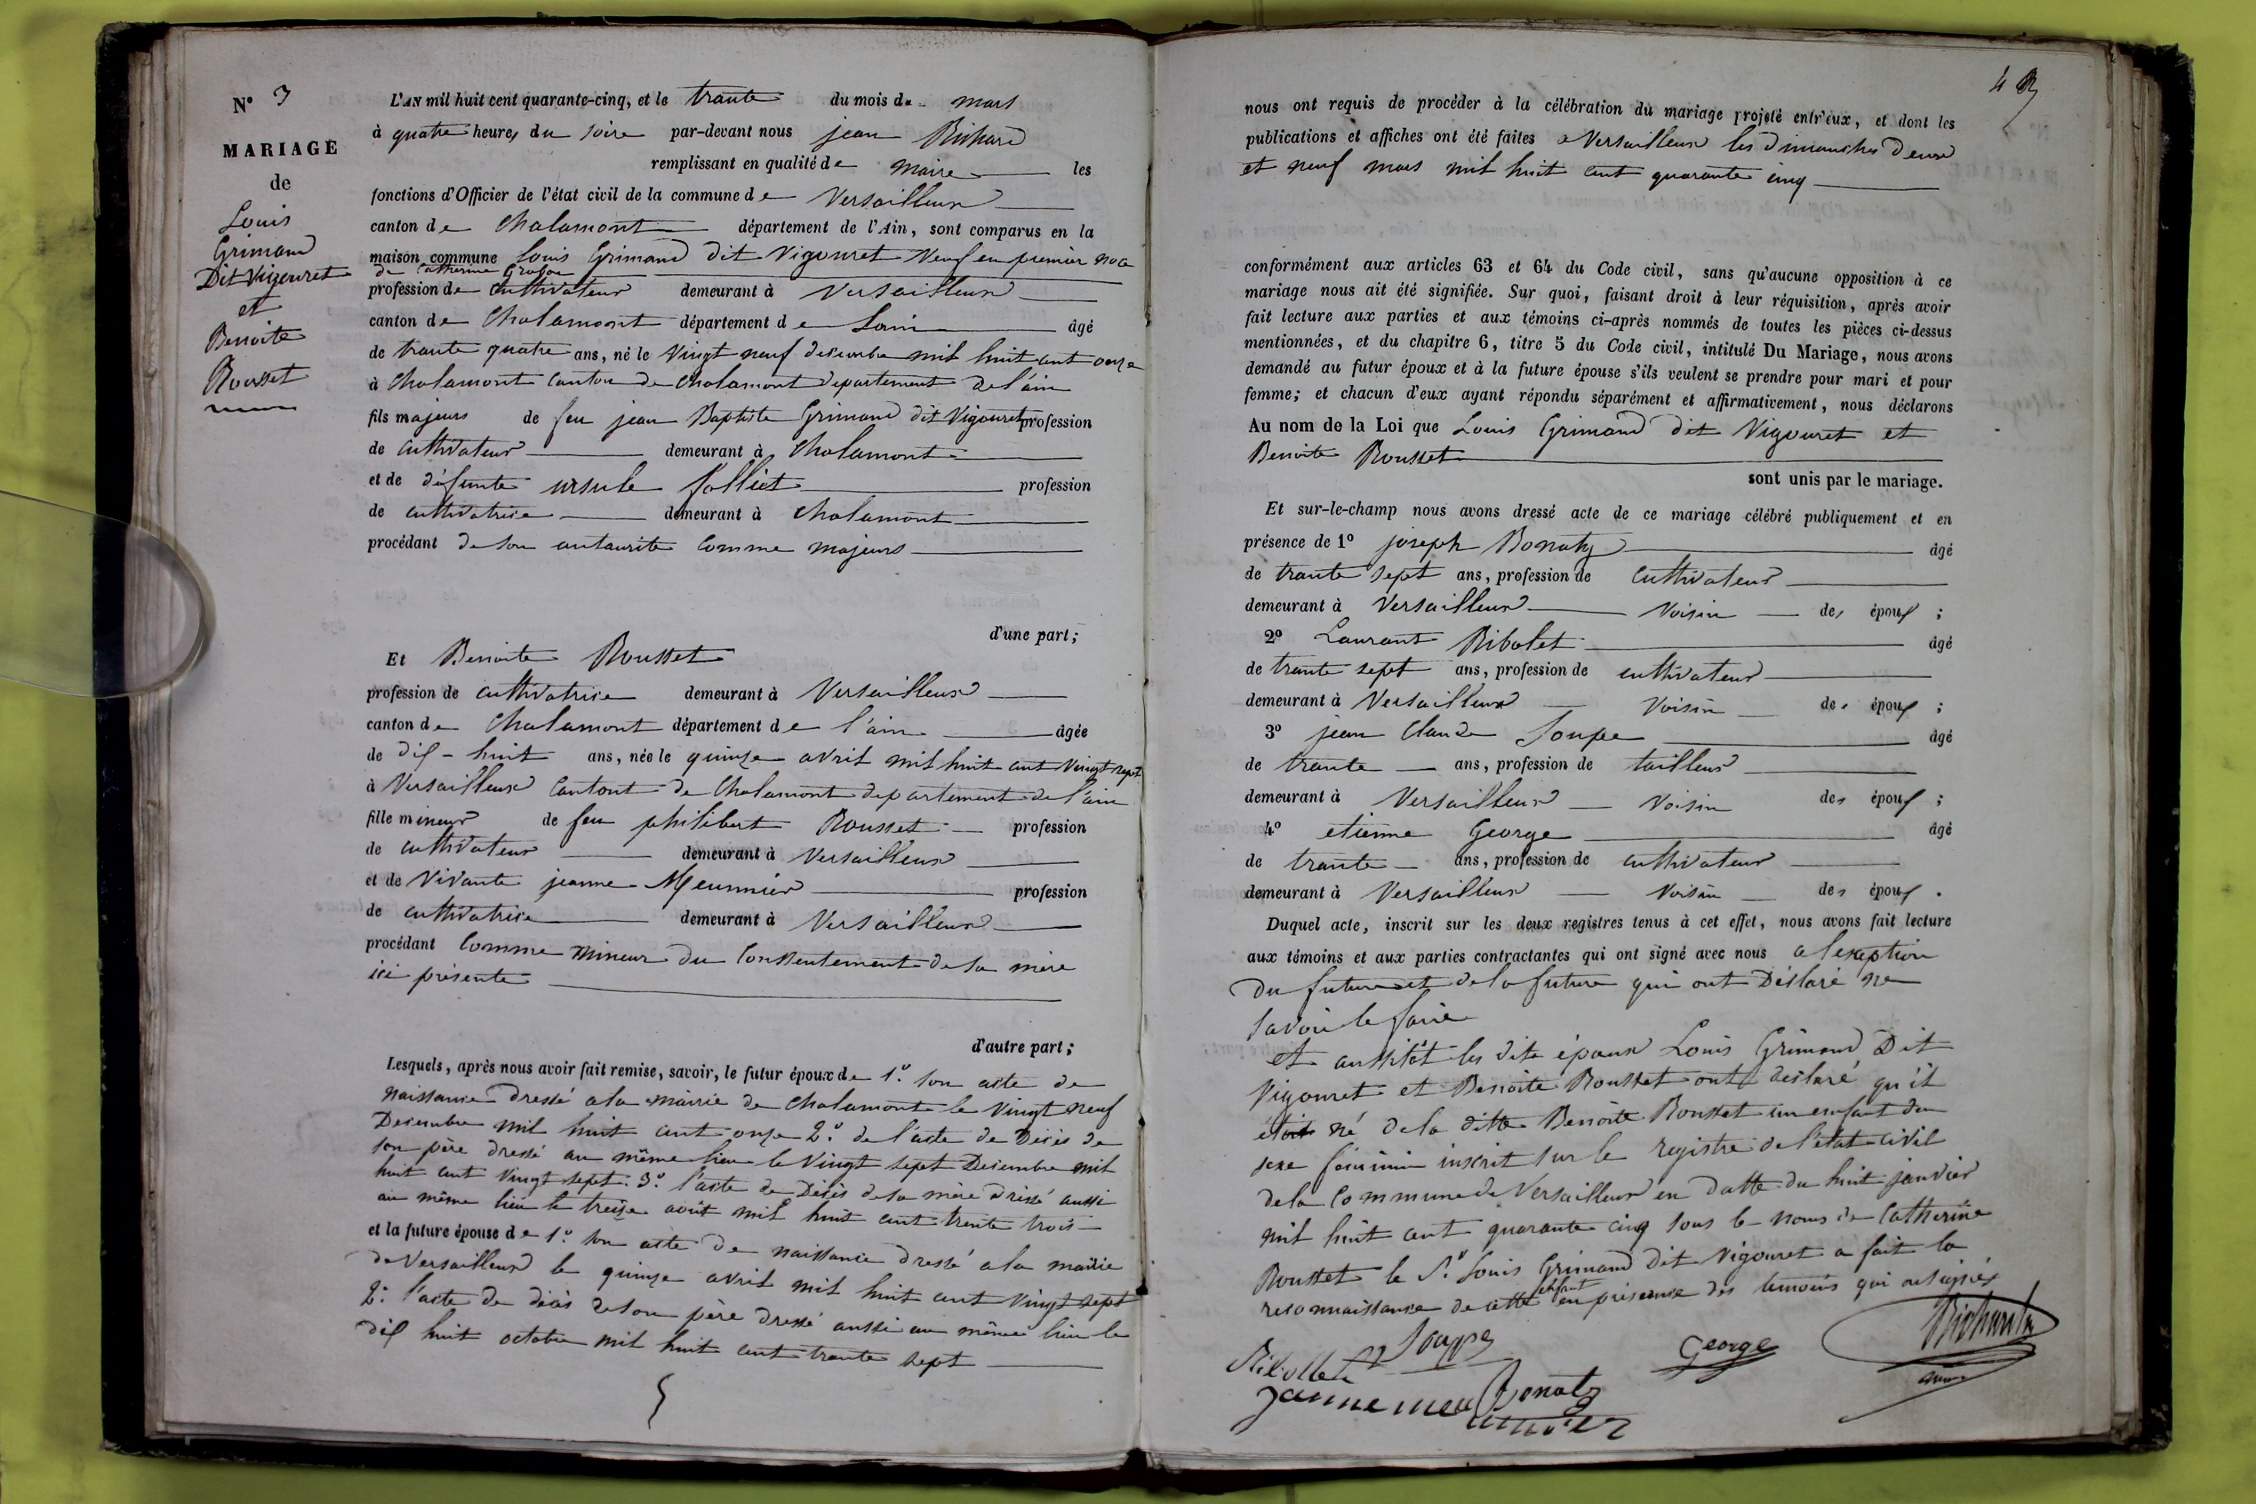 N° 3
MARIAGE
de
Louis
Grimand
Dit Vigouret
et
Benoite
Rousset
L'AN mil huit cent quarante-cinq, et le trante du mois de mars
à quatre heures du soire par-devant nous jean Richard
remplissant en qualité de maire les
fonctions d'Officier de l'état civil de la commune de Versailleux
canton de Chalamont département de l'Ain, sont comparus en la
maison commune Louis Grimand dit Vigouret Veuf en premier noce
de Catherine
profession de cultivateur demeurant à Versailleux
canton de Chalamont département de Lain âgé
de trante quatre ans, né le Vingt neuf decembre mil huit cent onze
à Chalamont canton de Chalamont departement de l'ain
fils majeur de feu jean Baptiste Grimand dit Vigouret profession
de cultivateur demeurant à Chalamont
et de défunte ursule folliet profession
de cultivatrice demeurant à Chalamont
procédant de son autaurité comme majeur
d'une part;
Et Benoite Rousset
profession de cultivatrice demeurant à Versailleux
canton de Chalamont département de l'ain âgée
de dix-huit ans, née le quinze avril mil huit cent Vingt sept
à Versailleux cantont de Chalamont departement de l'ain
fille mineur de feu philibert Rousset profession
de cultivateur demeurant à Versailleux
et de Vivante jeanne Meunnier profession
de cultivatrice demeurant à Versailleux
procédant comme mineur du consentement de sa mère
ici présente
d'autre part;
Lesquels, après nous avoir fait remise, savoir, le futur époux de 1.° son acte de
naissance dressé a la mairie de Chalamont le Vingt neuf
Decembre mil huit cent onze 2.° de l'acte de Décès de
son père dressé au même lieu le Vingt sept Decembre mil
huit cent Vingt sept. 3.° l'acte de Décès de sa mère dressé aussi
au même lieu le treize août mil huit cent trente trois
et la future épouse de 1.° son acte de naissance dressé a la mairie
de Versailleux le quinze avril mil huit cent Vingt sept
2.° l'acte de décès de son père dressé aussi au même lieu le
dix huit octobre mil huit cent trante sept
nous ont requis de procéder à la célébration du mariage projeté entr'eux, et dont les
publications et affiches ont été faites a Versailleux les dimanches deux
et neuf mars mil huit cent quarante cinq
conformément aux articles 63 et 64 du Code civil, sans qu'aucune opposition à ce
mariage nous ait été signifiée. Sur quoi, faisant droit à leur réquisition, après avoir
fait lecture aux parties et aux témoins ci-après nommés de toutes les pièces ci-dessus
mentionnées, et du chapitre 6, titre 5 du Code civil, intitulé Du Mariage, nous avons
demandé au futur époux et à la future épouse s'ils veulent se prendre pour mari et pour
femme; et chacun d'eux ayant répondu séparément et affirmativement, nous déclarons
Au nom de la Loi que Louis Grimand dit Vigouret et
Benoite Rousset
sont unis par le mariage.
Et sur-le-champ nous avons dressé acte de ce mariage célébré publiquement et en
présence de 1° joseph Bonaty âgé
de trante sept ans, profession de cultivateur
demeurant à Versailleux Voisin des époux ;
2° Laurant Ribolet âgé
de trante sept ans, profession de cultivateur
demeurant à Versailleux Voisin des époux ;
3° jean Claude Soupe âgé
de trante ans, profession de tailleur
demeurant à Versailleux Voisin des époux ;
4° etienne George âgé
de trante ans, profession de cultivateur
demeurant à Versailleux Voisin des époux .
Duquel acte, inscrit sur les deux registres tenus à cet effet, nous avons fait lecture
aux témoins et aux parties contractantes qui ont signé avec nous a lexeption
du future et de la future qui ont Déclaré ne
savoir le faire
et aussitôt les dits époux Louis Grimand Dit
Vigouret et Benoite Rousset ont déclaré qu'il
était né de la ditte Benoite Rousset un enfant du
sexe féminin inscrit sur le registre de l'état civil
de la Commune de Versailleux en datte du huit janvier
mil huit cent quarante cinq sous le noms de Catherine
Rousset le S.r Louis Grimand Dit Vigouret a fait la
reconnaissance de cette enfant en présence des temoins qui ont signés
Ribollet Soupe George Richard
Bonaty
janne meunnier